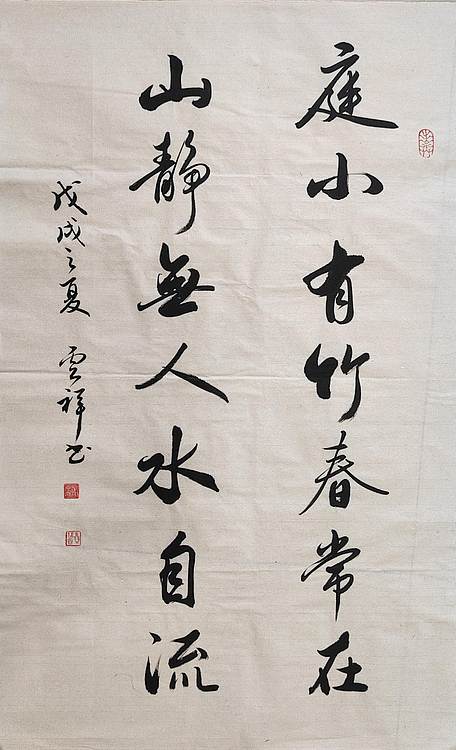 庭小有竹春常在
山靜無人水自流
戊戌之夏 雲祥书